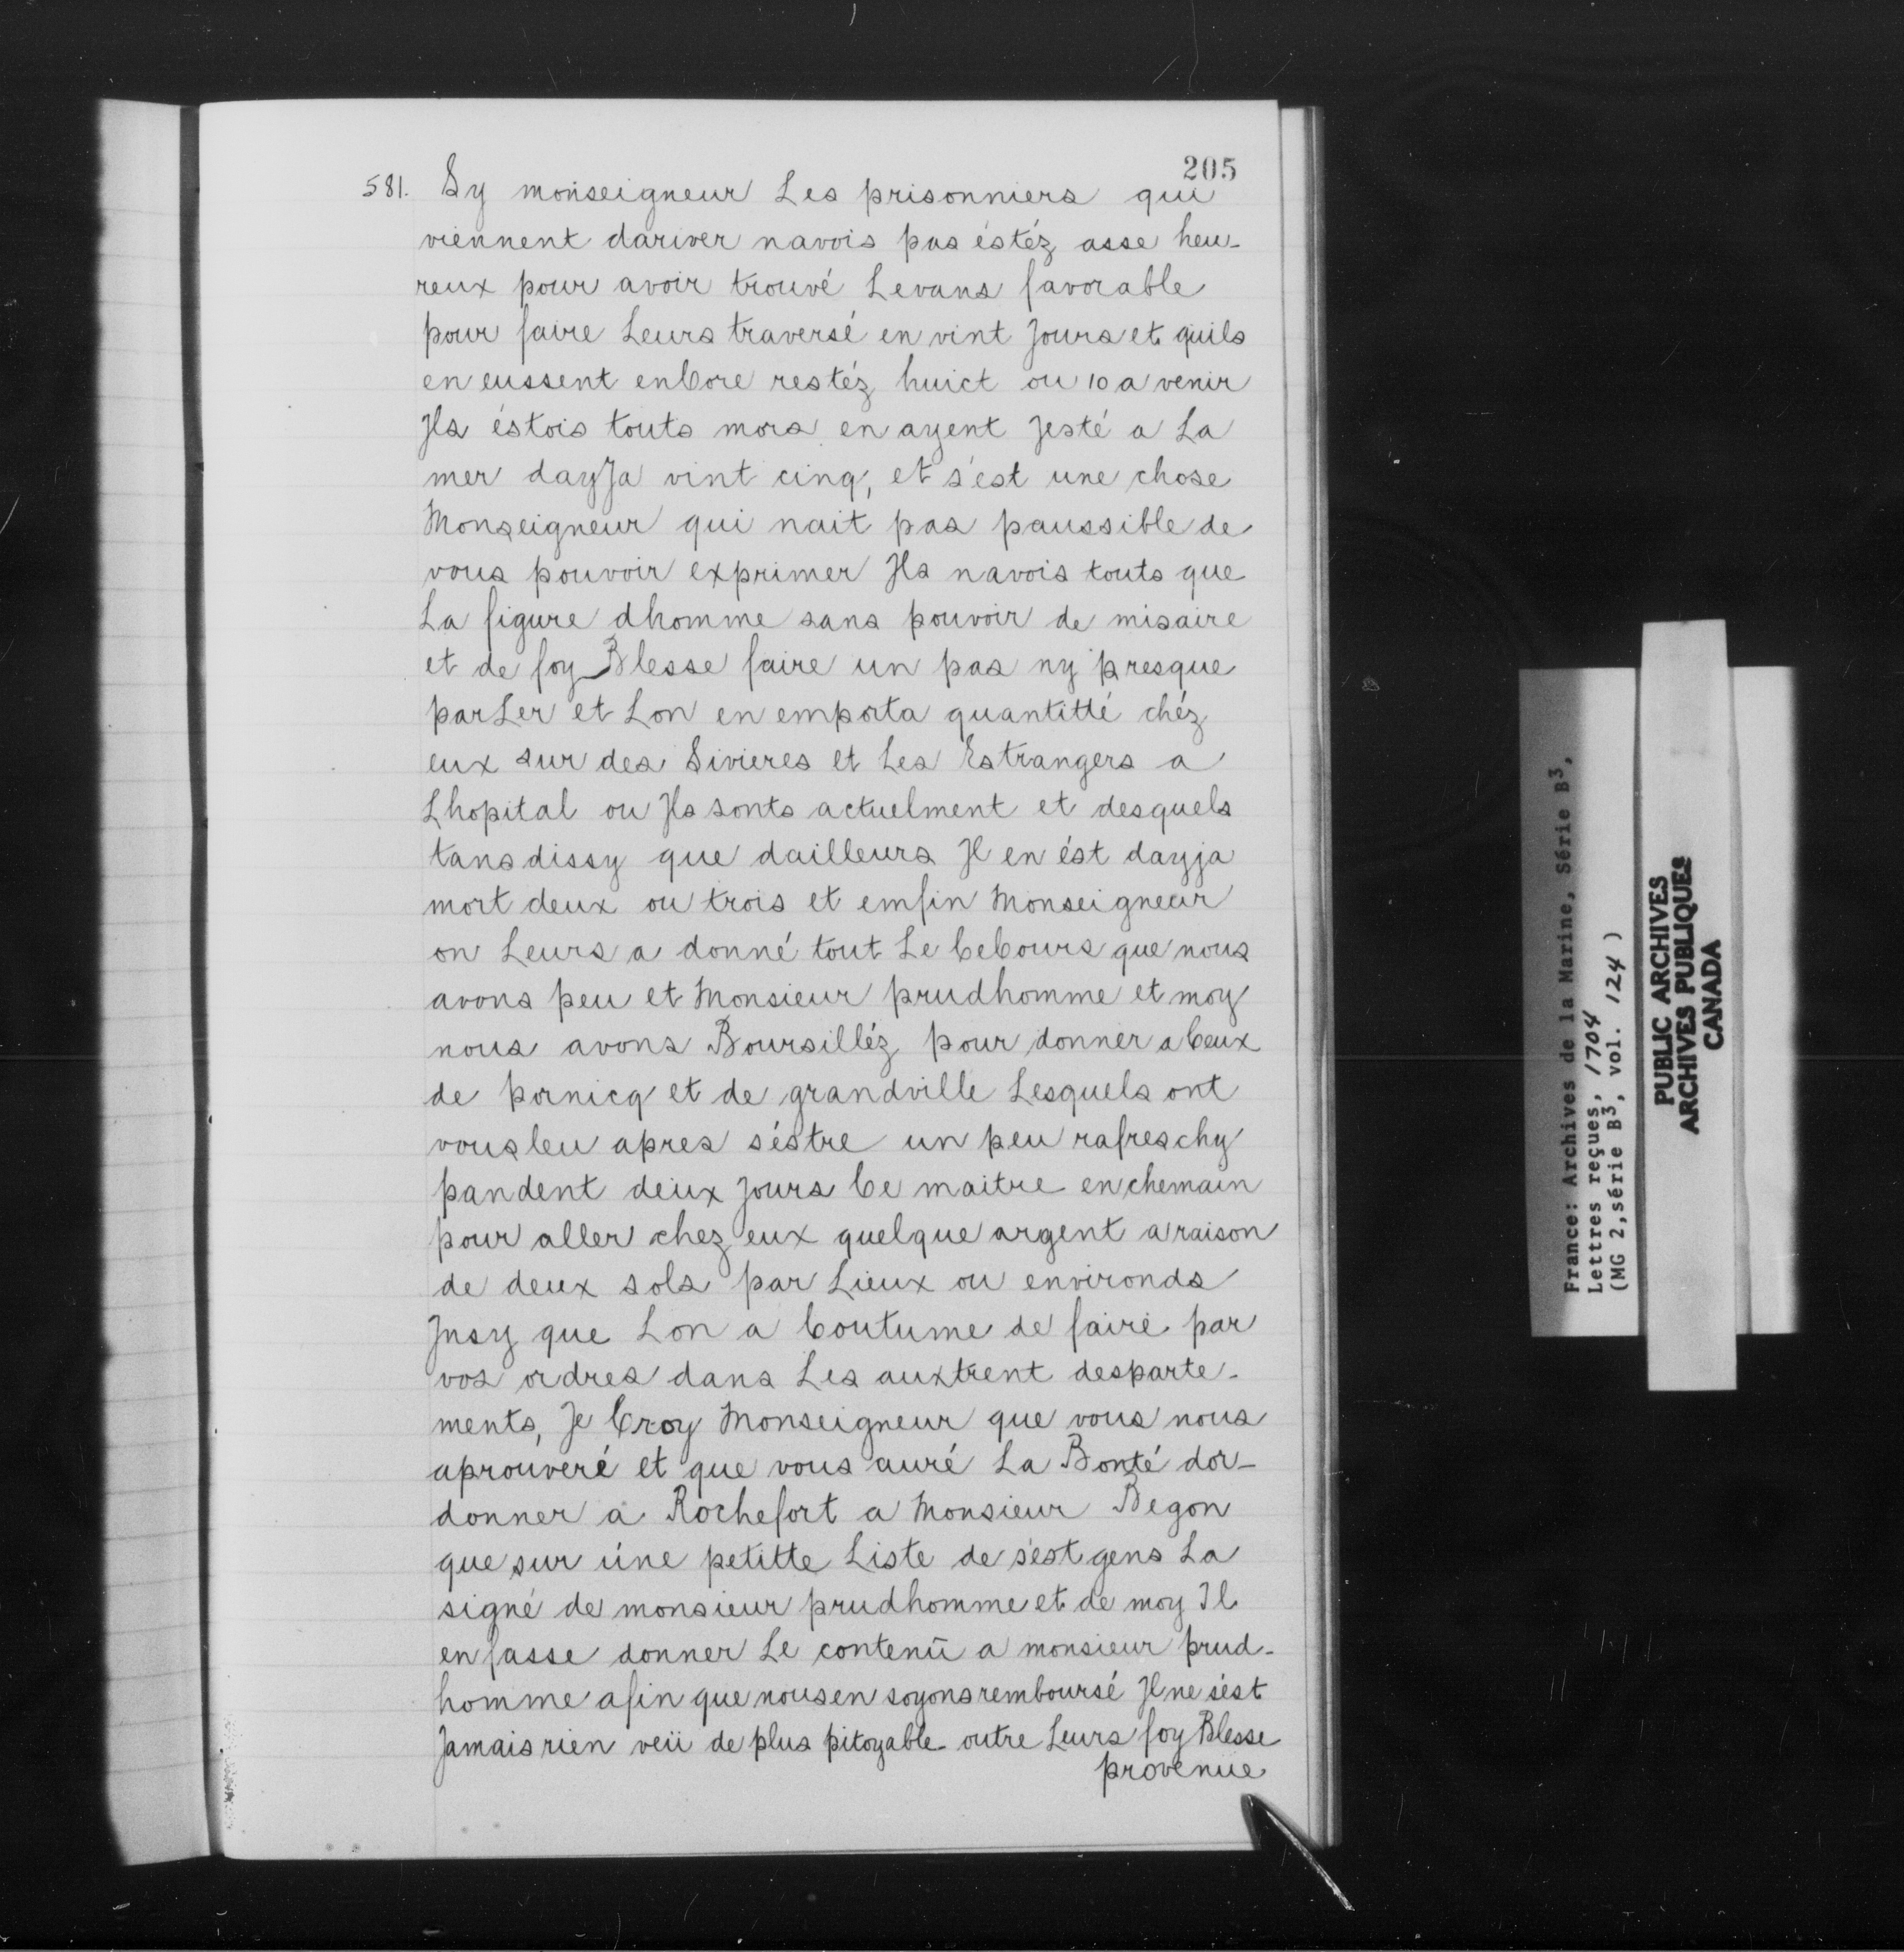 205
581. Sy monseigneur Les prisonniers qui
viennent dariver navois pas éstéz asse heu-
reux pour avoir trouvé Levans favorable
pour faire Leurs traversé en vint Jours et quils
en eussent enCore restéz huict ou 10 a venir
Jls éstois touts mors en ayent Jesté a La
mer dayJa vint cinq, et s'est une chose
Monseigneur qui nait pas paussible de
vous pouvoir exprimer Jls navois touts que
La figure dhomme sans pouvoir de misaire
et de foy Blesse faire un pas ny presque
parLer et Lon en emporta quantitté chéz
eux sur des Sivieres et Les Estrangers a
Lhopital ou Jls sonts actuelment et desquels
tans dissy que dailleurs Jl en ést dayja
mort deux ou trois et emfin Monseigneur
on Leurs a donné tout Le CeCours que nous
avons peu et Monsieur prudhomme et moy
nous avons Boursilléz pour donner a Ceux
de pornicq et de grandville Lesquels ont
vousleu apres s'éstre un peu rafreschy
pandent deux Jours Ce maitre en chemain
pour aller chez eux quelque argent a raison
de deux sols par Lieux ou environds
Jnsy que Lon a Coutume de faire par
vos ordres dans Les auxtrent desparte-
ments, Je Croy Monseigneur que vous nous
aprouveré et que vous auré La Bonté dor-
donner a Rochefort a Monsieur Begon
que sur une petitte Liste de s'est gens La
signé de monsieur prudhomme et de moy Il
en fasse donner Le contenü a monsieur prud-
homme afin que nous en soyons remboursé Jl ne s'ést
Jamais rien veü de plus pitoyable outre Leurs foy Blesse
provenüe
France: Archives de la Marine, Série B3,
Lettres reçues, 1704
(MG 2, série B3, vol. 124 )
PUBLIC ARCHIVES
ARCHIVES PUBLIQUES
CANADA